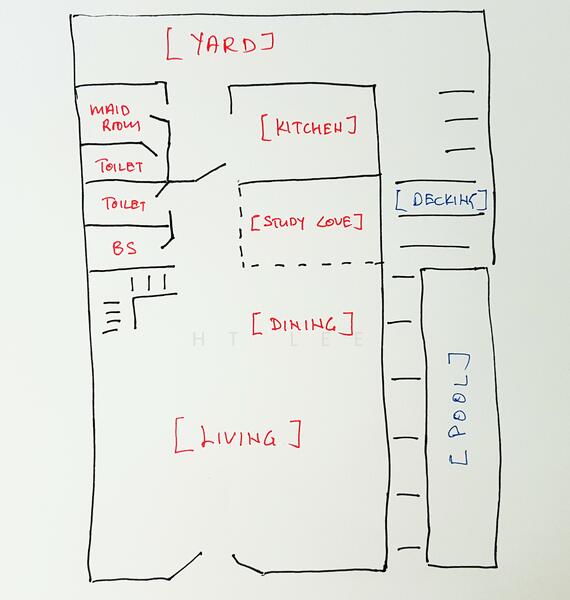 [YARD]
MAID
ROOM
[KITCHEN]
TOILET
TOILET
[DECKING]
[STUDY COVE]
BS
[DINING]
HT LEE
[POOL]
[LIVING]